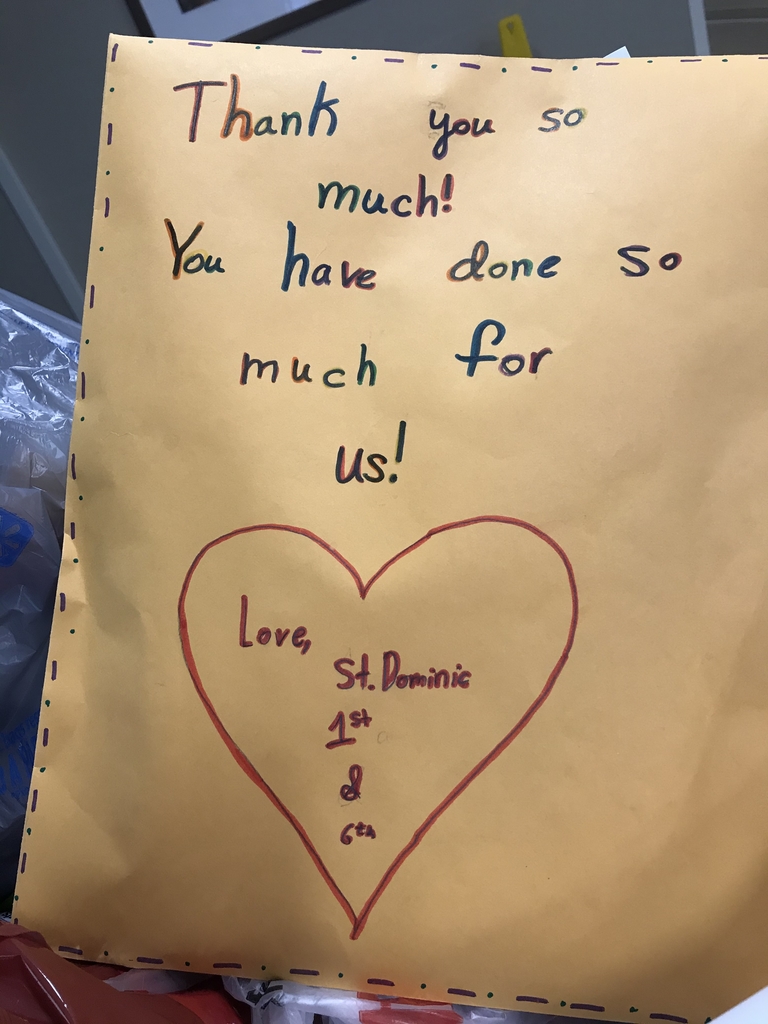 Thank you so
much!
You have done so
much for
us!
Love,
St. Dominic
1st
&
6th